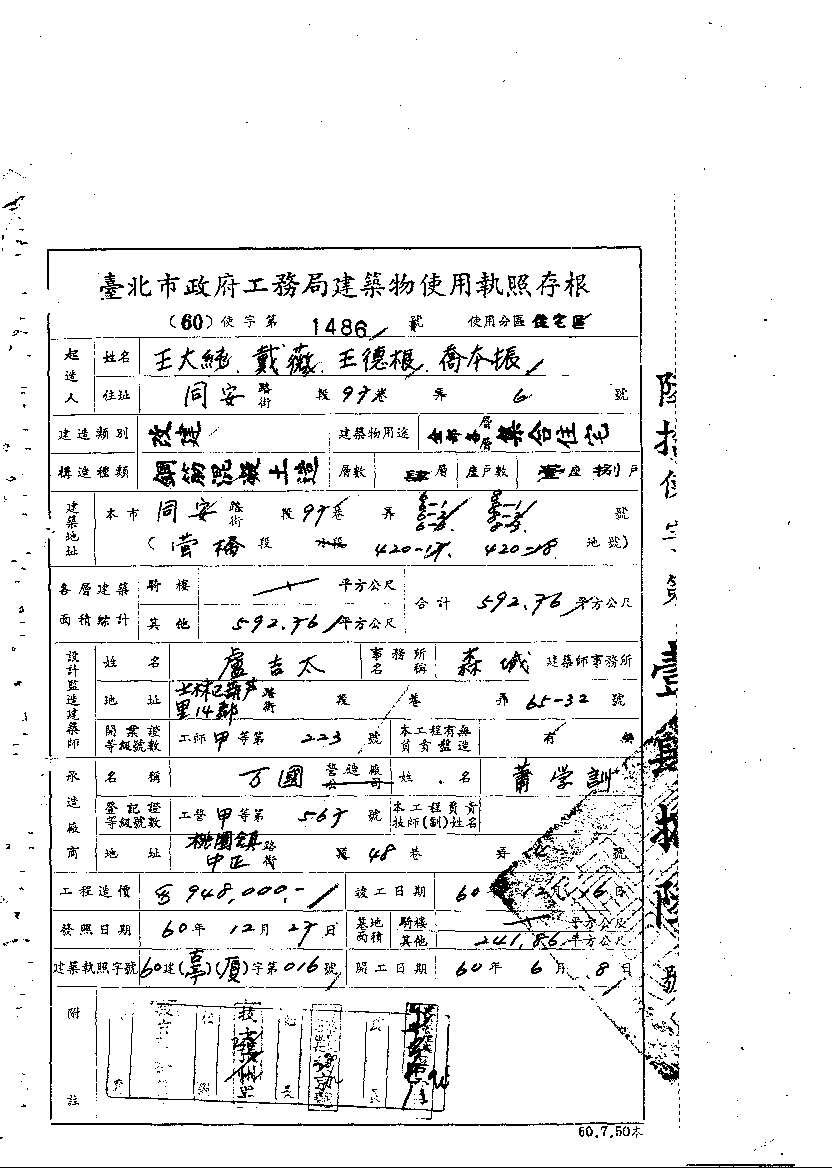 臺北市政府工務局建築物使用執照存根
(60)使字第 1486 號 使用分區 住宅區
起造人 姓名 王大純 戴薇 王德根 喬本振
住址 同安 路街 段 97 巷 弄 6 號
建造類別 改建 建築物用途 全部各層 集合住宅
構造種類 鋼筋混凝土造 層數 肆層 座戶數 壹座 捌戶
建築地址 本市 同安 路街 段 97 巷 弄 號
(營橋段 小段 420-17 420-18 地號)
各層建築面積綜計 騎樓 平方公尺 合計 592.76 平方公尺
其他 592.76 平方公尺
設計監造建築師 姓名 盧吉太 事務所名稱 森城 建築師事務所
地址 士林區葫芦里14鄰 路街 段 巷 弄 65-32 號
開業證等級號數 工師 甲等第 223 號 本工程有無負責監造 有 無
承造廠商 名稱 万國 營造廠公司 姓名 蕭学訓
登記證等級號數 工營 甲等第 567 號 本工程負責技師(副)姓名
地址 桃園鎮中正 路街 段 48 巷 弄 號
工程造價 948,000.- 竣工日期 60年12月16日
發照日期 60年12月27日 基地面積 騎樓 平方公尺
其他 241.86 平方公尺
建築執照字號 60建(字)第016號 開工日期 60年6月8日
附註
60.7.50本
陸拾使字第壹 拾陸號